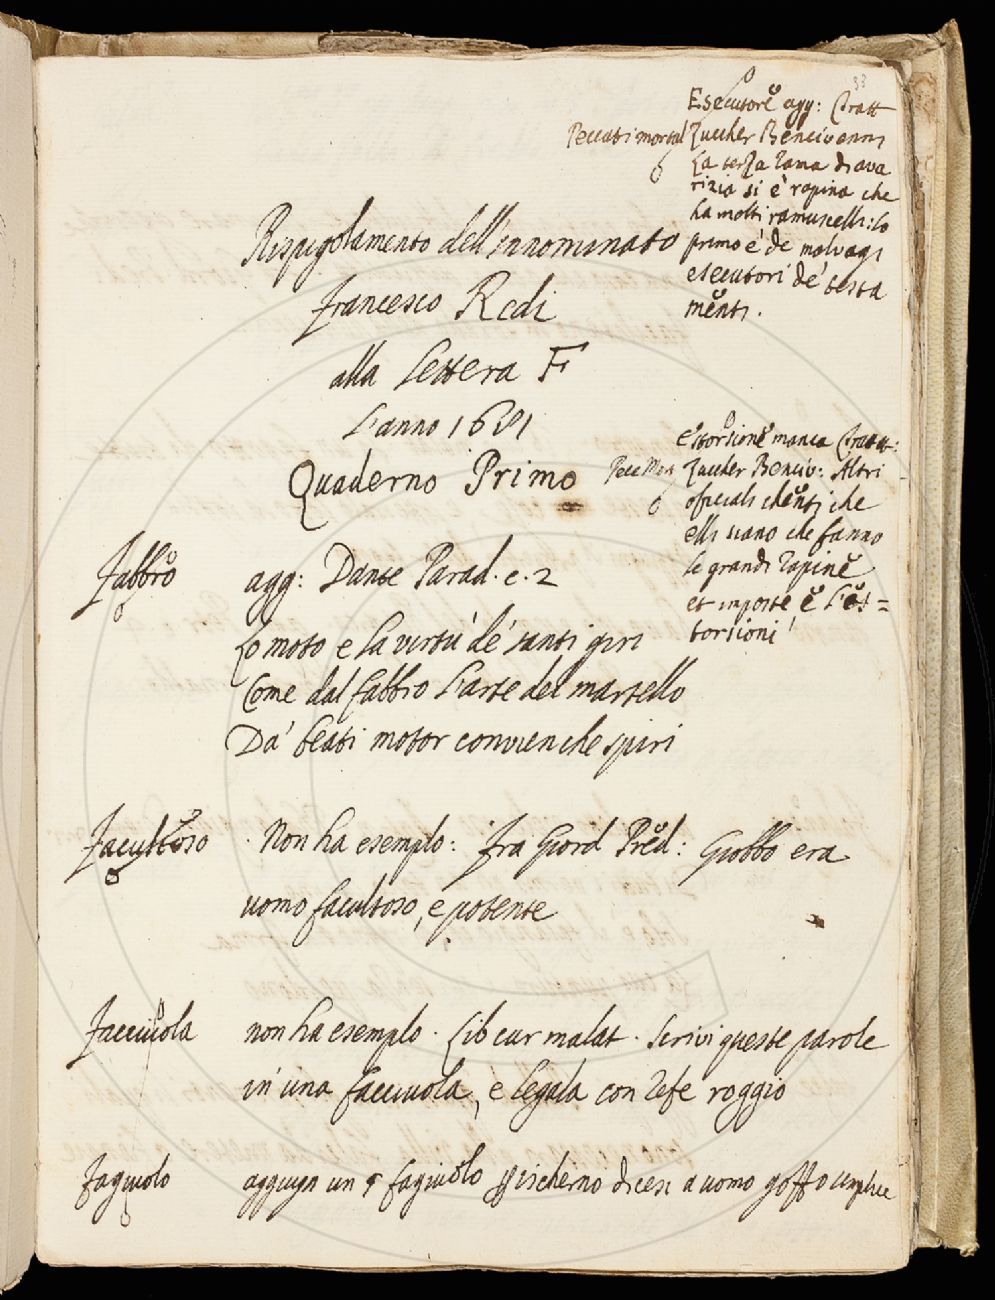 33
Esecutore agg: Tratt
Peccati mortal Zuccher Bencivenni
La terza rama d'ava
rizia si è rapina che
ha molti ramuscelli: lo
primo è de malvagi
esecutori de' testa
menti.
Rispigolamento dell'Innominato
Francesco Redi
alla Lettera F
L'anno 1681
Quaderno Primo
Estorsione manca Tratt:
Pecc Mort Zuccher Benciv: Altri
oficiali chenti che
elli siano che fanno
le grandi rapine
et imposte e l'es=
torsioni
Fabbro agg: Dante Parad. c. 2
Lo moto e la virtù de' santi giri
Come dal fabbro l'arte del martello
Da' beati motor convien che spiri
Facultoso Non ha esemplo: Fra Giord Pred: Giobbo era
uomo facultoso, e potente
Facciuola non ha esemplo. Lib cur malat. Scrivi queste parole
in una facciuola, e legala con refe roggio
Fagiuolo aggiugn un fagiuolo ischerno dicesi a uomo goffo